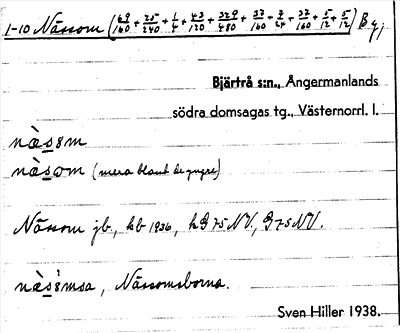 1-10 Nässom (69/160 + 25/240 + 1/4 + 43/120 + 329/480 + 37/160 + 7/24 + 37/160 + 5/12 + 5/12) By;
Bjärtrå s:n., Ångermanlands
södra domsagas tg., Västernorrl. l.
nä̀s8m
nä̀som (mera bland de yngre)
Nässom jb., kb 1936, hG 75 NV., G 75 NV.
nä̀s8msa, Nässomsborna.
Sven Hiller 1938.